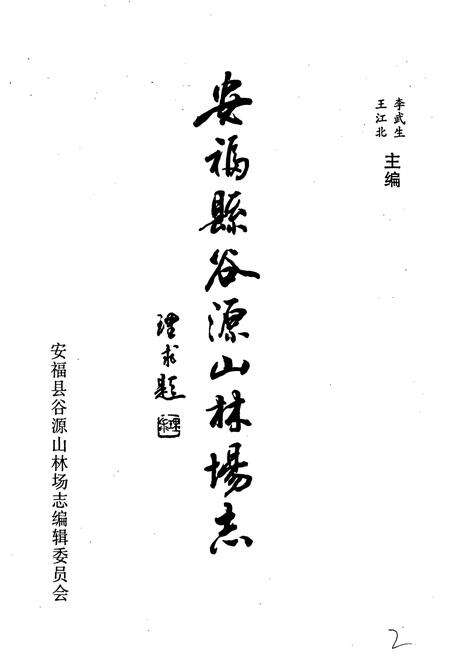 李武生
王江北
主编
安福縣谷源山林場志
理求题
安福县谷源山林场志编辑委员会
2